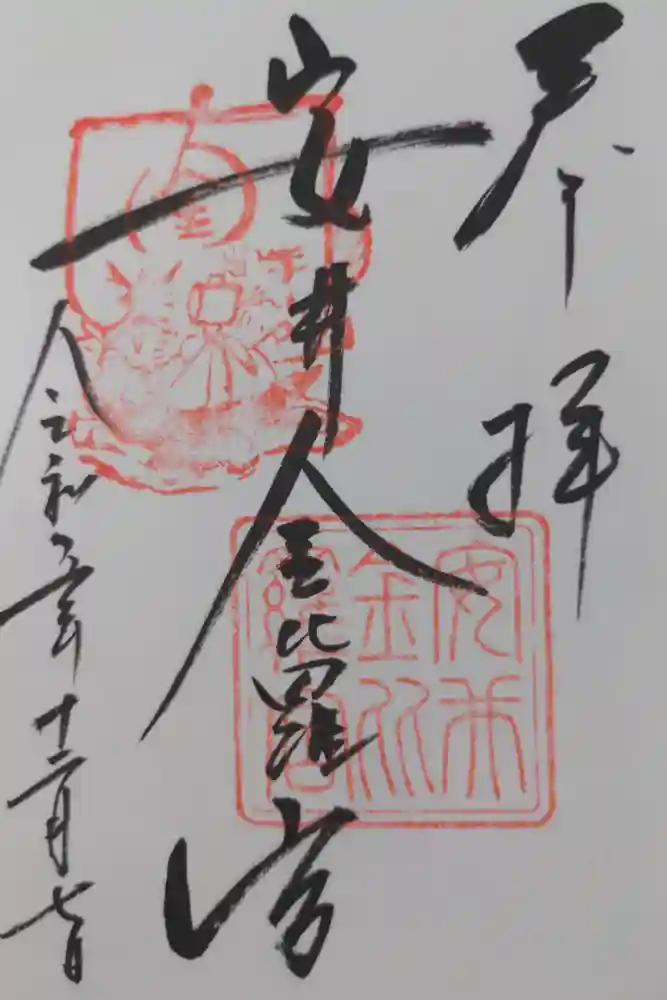 奉拝
安井金比羅宮
令和五年十二月七日
安井
金比
羅宮
金